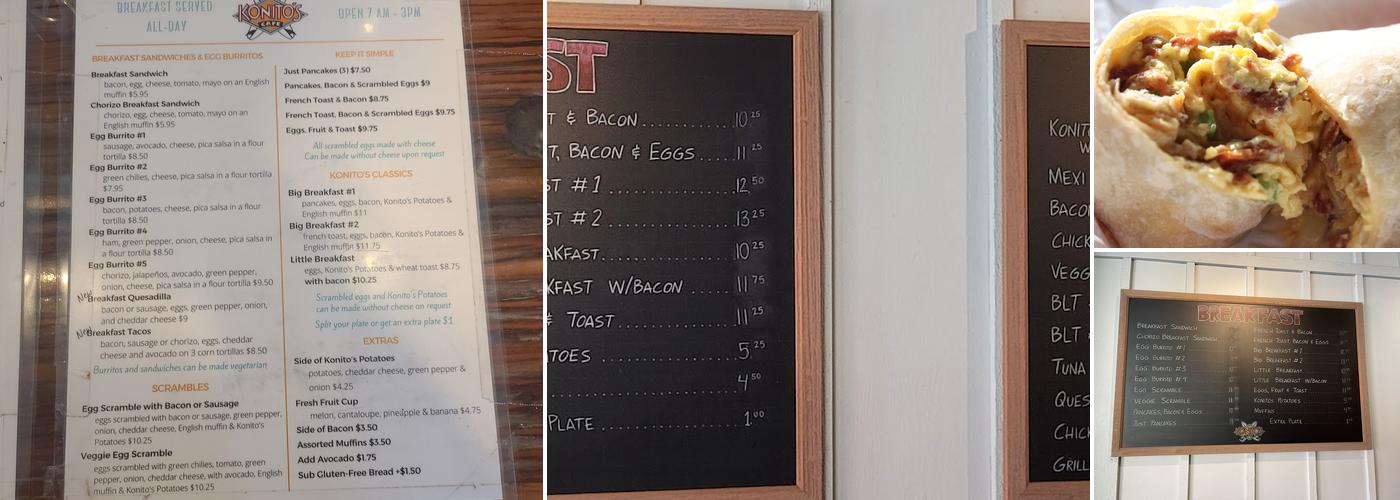 BREAKFAST SERVED
ALL-DAY
KONITO'S
CAFE
OPEN 7 AM - 3PM
BREAKFAST SANDWICHES & EGG BURRITOS
Breakfast Sandwich
bacon, egg, cheese, tomato, mayo on an English
muffin $5.95
Chorizo Breakfast Sandwich
chorizo, egg, cheese, tomato, mayo on an
English muffin $5.95
Egg Burrito #1
sausage, avocado, cheese, pica salsa in a flour
tortilla $8.50
Egg Burrito #2
green chilies, cheese, pica salsa in a flour tortilla
$7.95
Egg Burrito #3
bacon, potatoes, cheese, pica salsa in a flour
tortilla $8.50
Egg Burrito #4
ham, green pepper, onion, cheese, pica salsa in
a flour tortilla $8.50
Egg Burrito #5
chorizo, jalapeños, avocado, green pepper,
onion, cheese, pica salsa in a flour tortilla $9.50
New
Breakfast Quesadilla
bacon or sausage, eggs, green pepper, onion,
and cheddar cheese $9
New
Breakfast Tacos
bacon, sausage or chorizo, eggs, cheddar
cheese and avocado on 3 corn tortillas $8.50
Burritos and sandwiches can be made vegetarian
SCRAMBLES
Egg Scramble with Bacon or Sausage
eggs scrambled with bacon or sausage, green pepper,
onion, cheddar cheese, English muffin & Konito's
Potatoes $10.25
Veggie Egg Scramble
eggs scrambled with green chilies, tomato, green
pepper, onion, cheddar cheese, with avocado, English
muffin & Konito's Potatoes $10.25
KEEP IT SIMPLE
Just Pancakes (3) $7.50
Pancakes, Bacon & Scrambled Eggs $9
French Toast & Bacon $8.75
French Toast, Bacon & Scrambled Eggs $9.75
Eggs, Fruit & Toast $9.75
All scrambled eggs made with cheese
Can be made without cheese upon request
KONITO'S CLASSICS
Big Breakfast #1
pancakes, eggs, bacon, Konito's Potatoes &
English muffin $11
Big Breakfast #2
french toast, eggs, bacon, Konito's Potatoes &
English muffin $11.75
Little Breakfast
eggs, Konito's Potatoes & wheat toast $8.75
with bacon $10.25
Scrambled eggs and Konito's Potatoes
can be made without cheese on request
Split your plate or get an extra plate $1
EXTRAS
Side of Konito's Potatoes
potatoes, cheddar cheese, green pepper &
onion $4.25
Fresh Fruit Cup
melon, cantaloupe, pineapple & banana $4.75
Side of Bacon $3.50
Assorted Muffins $3.50
Add Avocado $1.75
Sub Gluten-Free Bread +$1.50
ST
T & BACON 10 25
T, BACON & EGGS 11 25
ST #1 12 50
ST #2 13 25
AKFAST 10 25
KFAST W/BACON 11 75
& TOAST 11 25
TOES 5 25
4 50
PLATE 1 00
KONIT
W
MEXI
BACO
CHICK
VEGG
BLT
BLT
TUNA
QUES
CHICK
GRILL
BREAKFAST
BREAKFAST SANDWICH
CHORIZO BREAKFAST SANDWICH
EGG BURRITO #1
EGG BURRITO #2
EGG BURRITO #3
EGG BURRITO #4
EGG SCRAMBLE
VEGGIE SCRAMBLE
PANCAKES, BACON & EGGS
JUST PANCAKES
FRENCH TOAST & BACON
FRENCH TOAST, BACON & EGGS
BIG BREAKFAST #1
BIG BREAKFAST #2
LITTLE BREAKFAST
LITTLE BREAKFAST W/BACON
EGGS, FRUIT & TOAST
KONITOS POTATOES
MUFFINS
EXTRA PLATE
KONITO'S